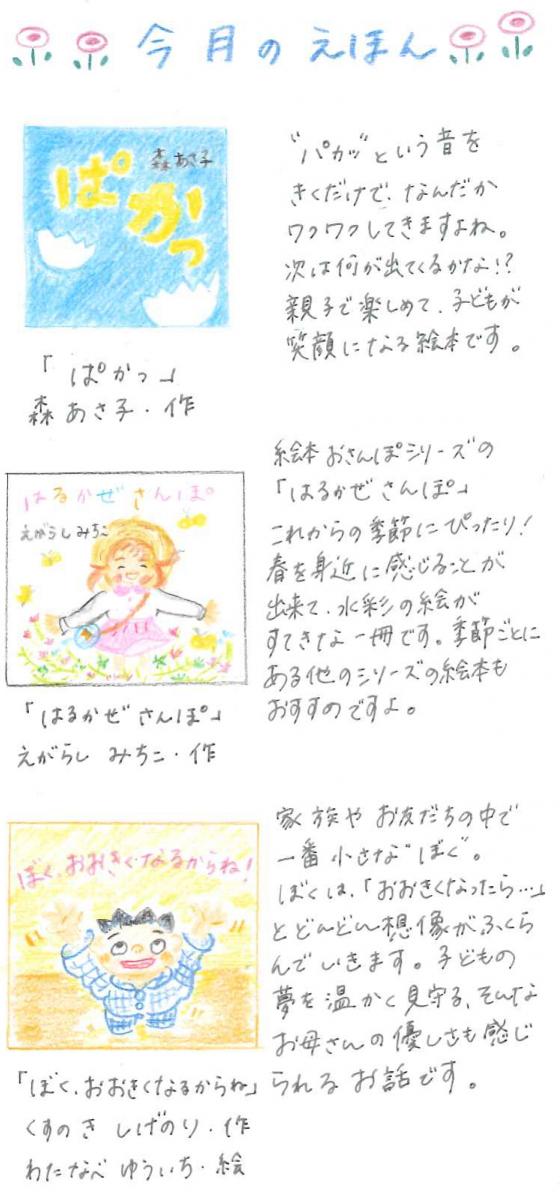 今月のえほん
森あさ子
ぱかっ
"パカッ"という音を
きくだけで、なんだか
ワクワクしてきますよね。
次は何が出てくるかな!?
親子で楽しめて、子どもが
笑顔になる絵本です。
「ぱかっ」
森あさ子・作
はるかぜさんぽ
えがしらみちこ
絵本おさんぽシリーズの
「はるかぜさんぽ」
これからの季節にぴったり!
春を身近に感じることが
出来て、水彩の絵が
すてきな一冊です。季節ごとに
ある他のシリーズの絵本も
おすすめですよ。
「はるかぜさんぽ」
えがらし みちこ・作
ぼく、おおきくなるからね!
家族や お友だちの中で
一番小さな"ぼく"。
ぼくは、「おおきくなったら…」
とどんどん想像がふくら
んでいきます。子どもの
夢を温かく見守る、そんな
お母さんの優しさも感じ
られるお話です。
「ぼく、おおきくなるからね」
くすのき しげのり・作
わたなべ ゆういち・絵